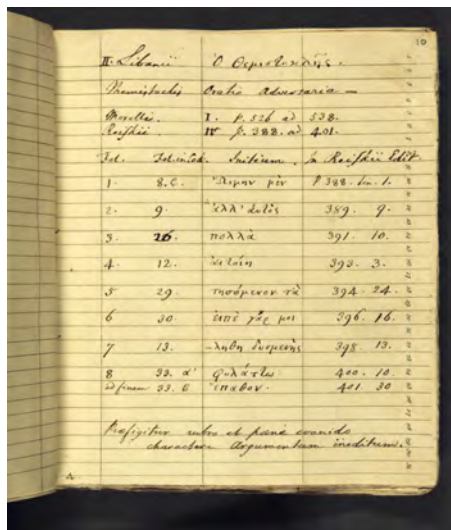 10
II. Libanii Ὁ Θεμιστοκλῆς.
Themistoclis Oratio Adversaria —
Morellii. I. p. 526 ad 538.
Reiskii. IV p. 388. ad 401.
Fol. Fol. in Cod. Initium. In Reiskii Edit.
1. 8. ᾤμην μὲν P. 388. lin. 1.
2. 9. ἀλλ' αὐτὸς 389. 9.
3. 26. πολλὰ 391. 10.
4. 12. 393. 3.
5 29. τησόμενον τὰ 394. 24.
6 30. εἰπὲ γάρ μοι 396. 16.
7 13. –ληθη δυσμενὴς 398. 13.
8 33. a' φυλάττω 400. 10.
ad finem 33. b ἔπαθον. 401. 30
Praefigitur rubro et paene evanido
charactere Argumentum ineditum.